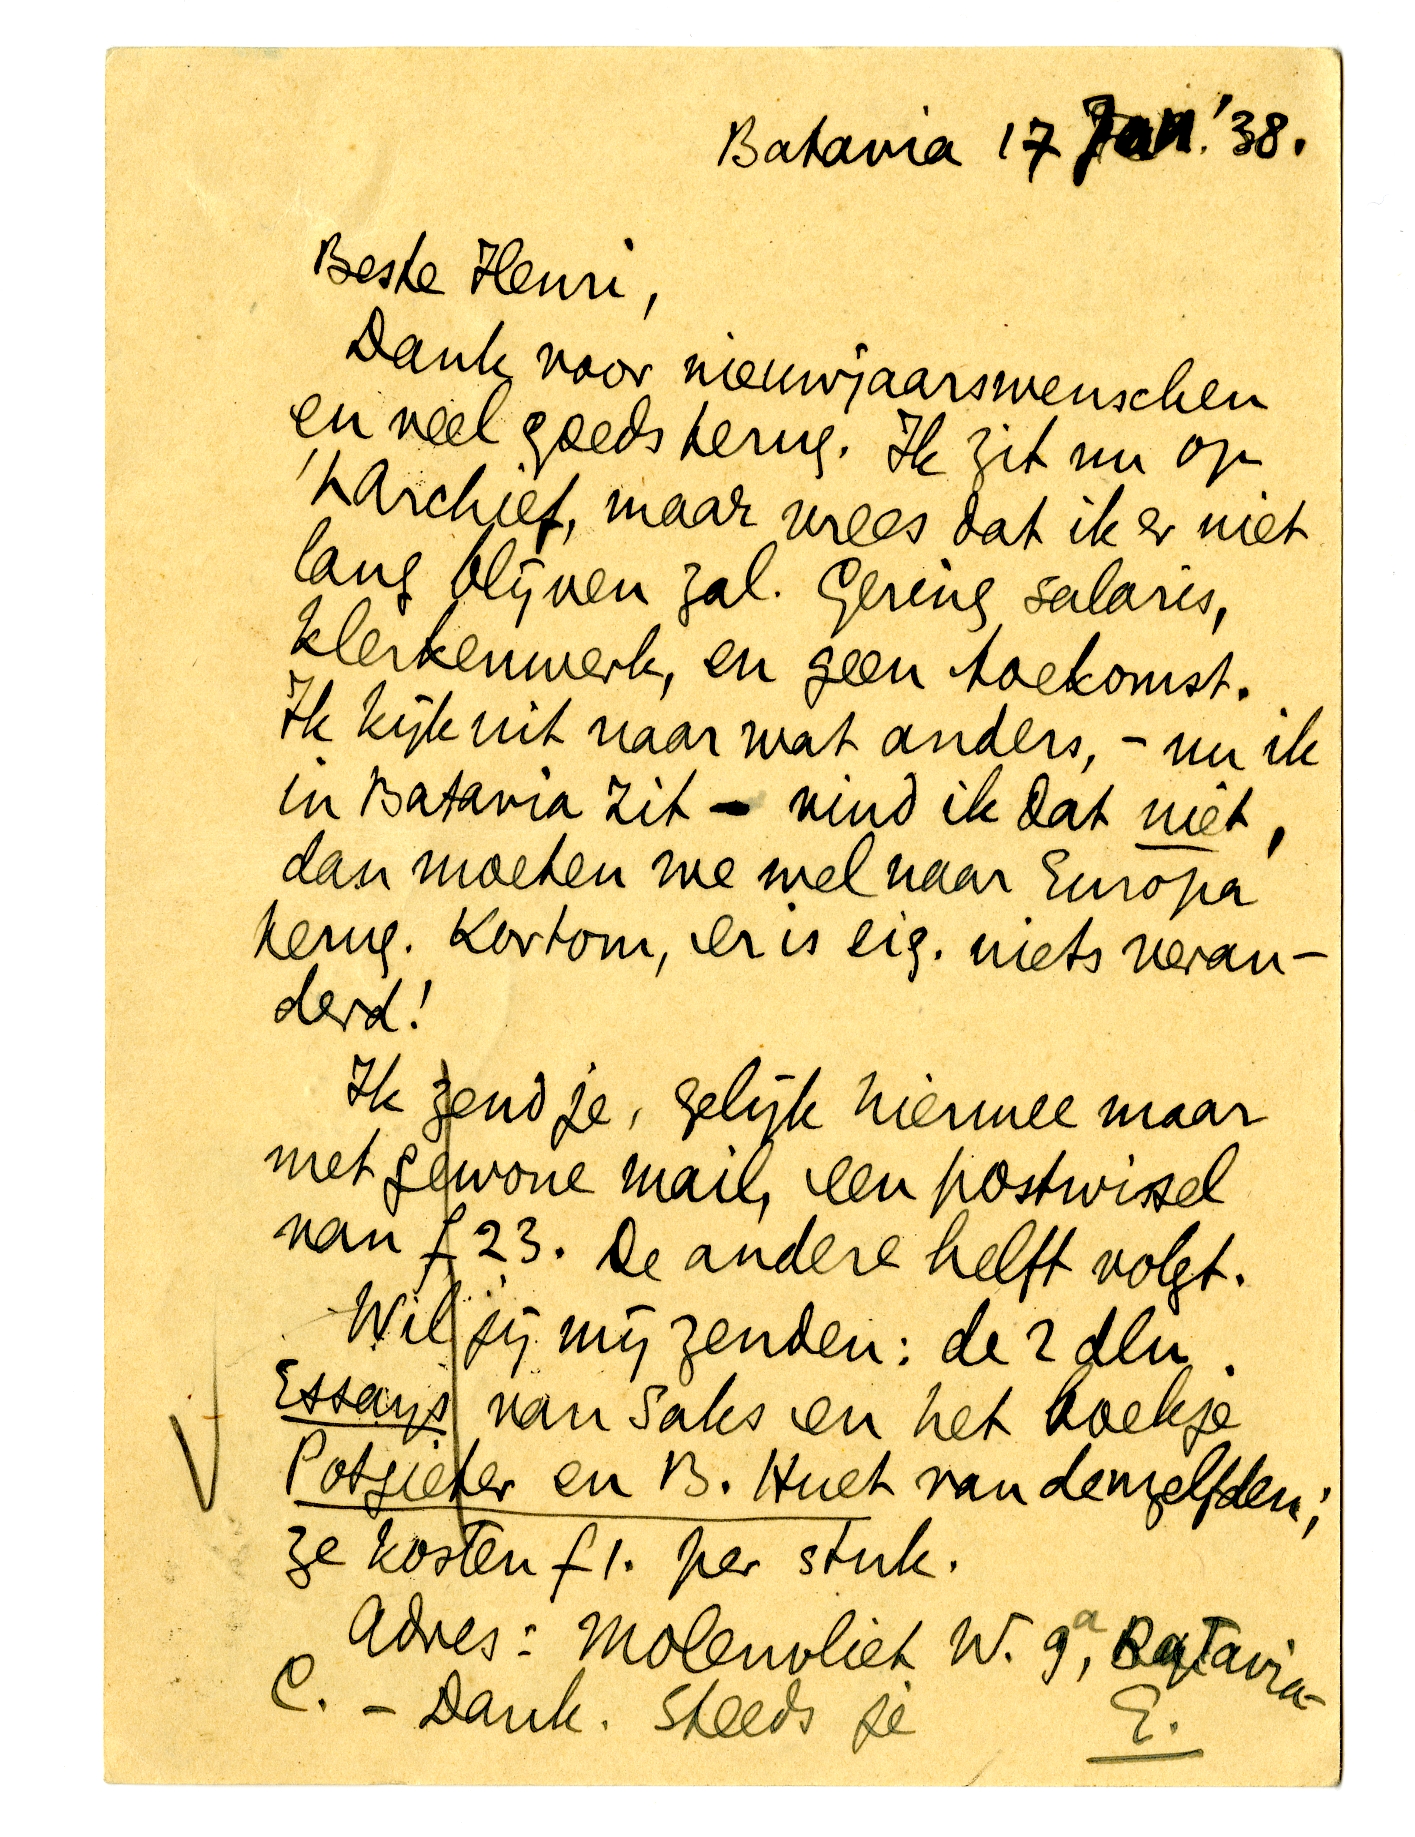 Batavia 17 Jan. '38.
Beste Henri,
Dank voor nieuwjaarswenschen
en veel goeds terug. Ik zit nu op
't Archief, maar vrees dat ik er niet
lang blijven zal. Gering salaris,
klerkenwerk, en geen toekomst.
Ik kijk uit naar wat anders, - nu ik
in Batavia zit - vind ik dat niet,
dan moeten we wel naar Europa
terug. Kortom, er is eig. niets veran-
derd!
Ik zend je, gelijk hiermee maar
met gewone mail, een postwissel
van f 23. De andere helft volgt.
Wil jij mij zenden: de 2 dln.
Essays van Saks en het boekje
Potgieter en B. Huet van denzelfden;
ze kosten f 1. per stuk.
Adres: Molenvliet W. 9a, Batavia-
C. - Dank. Steeds je
E.